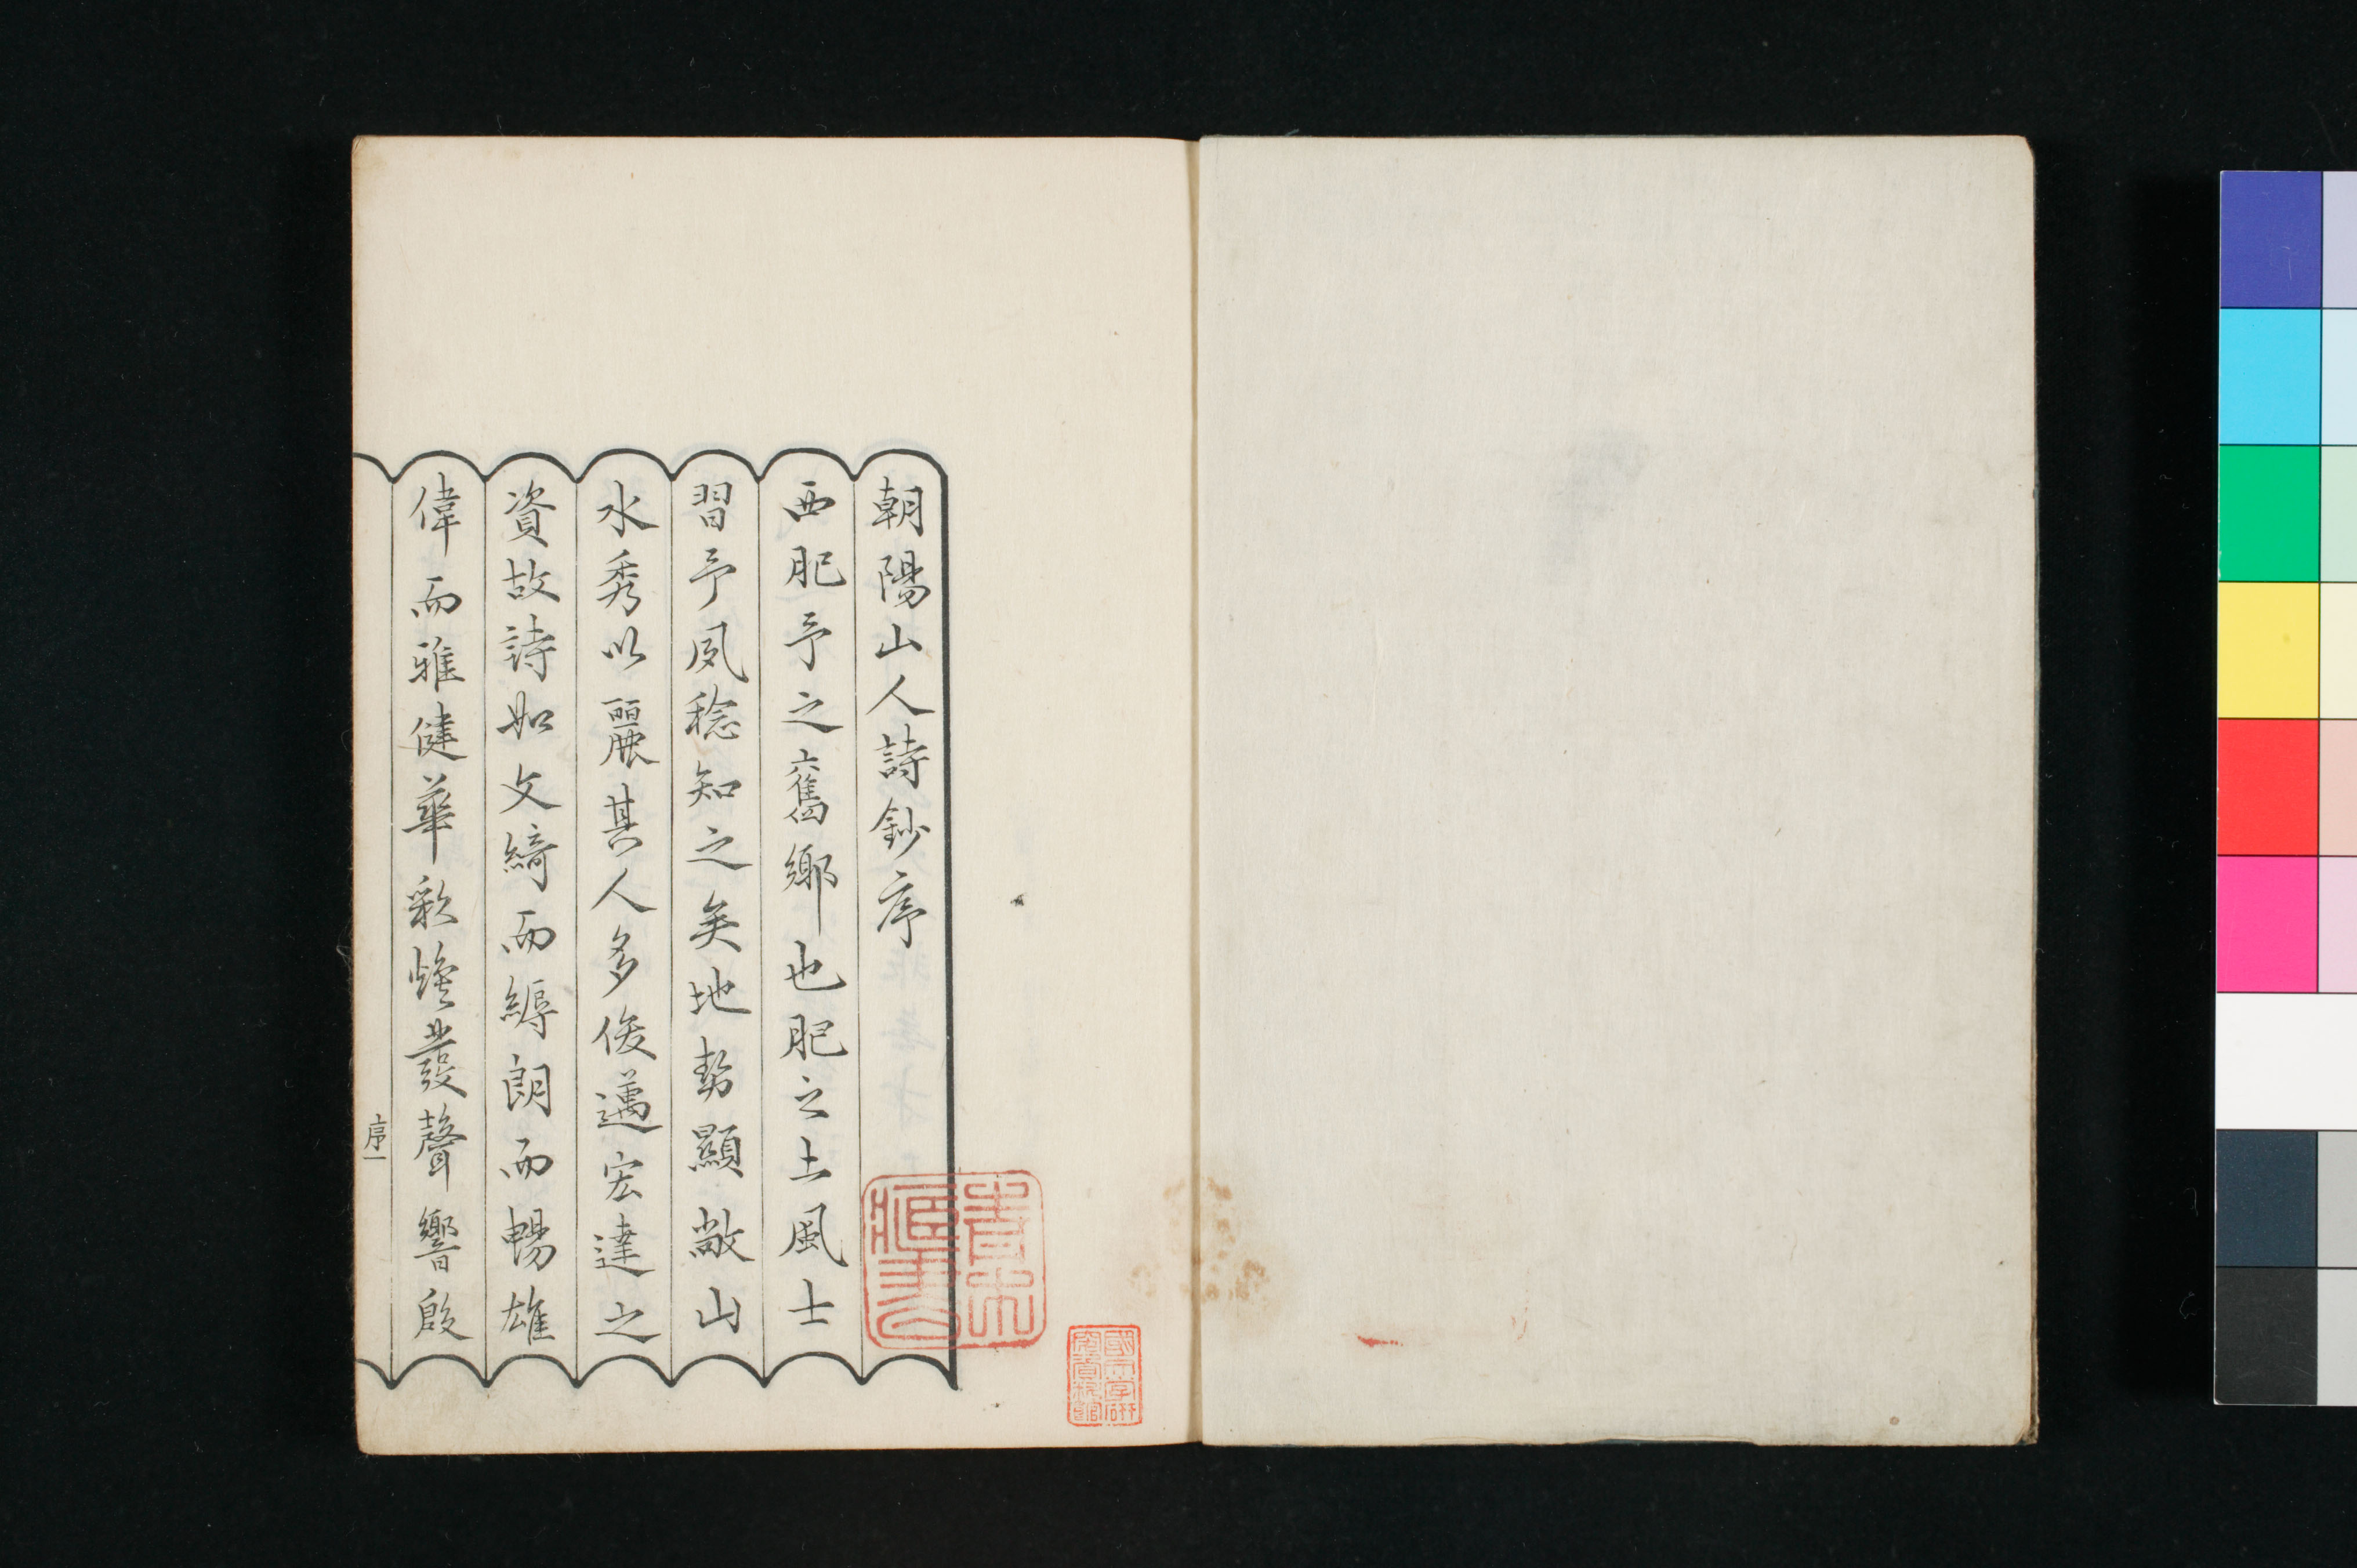 朝陽山人詩鈔序
西肥予之舊鄉也肥之土風士
習予夙稔知之矣地勢顯敞山
水秀以麗其人多俊邁宏達之
資故詩如文綺而縟朗而暢雄
偉而雅健華彩煥發聲響殷
序一
青木
藏書
國文學研
究資料館